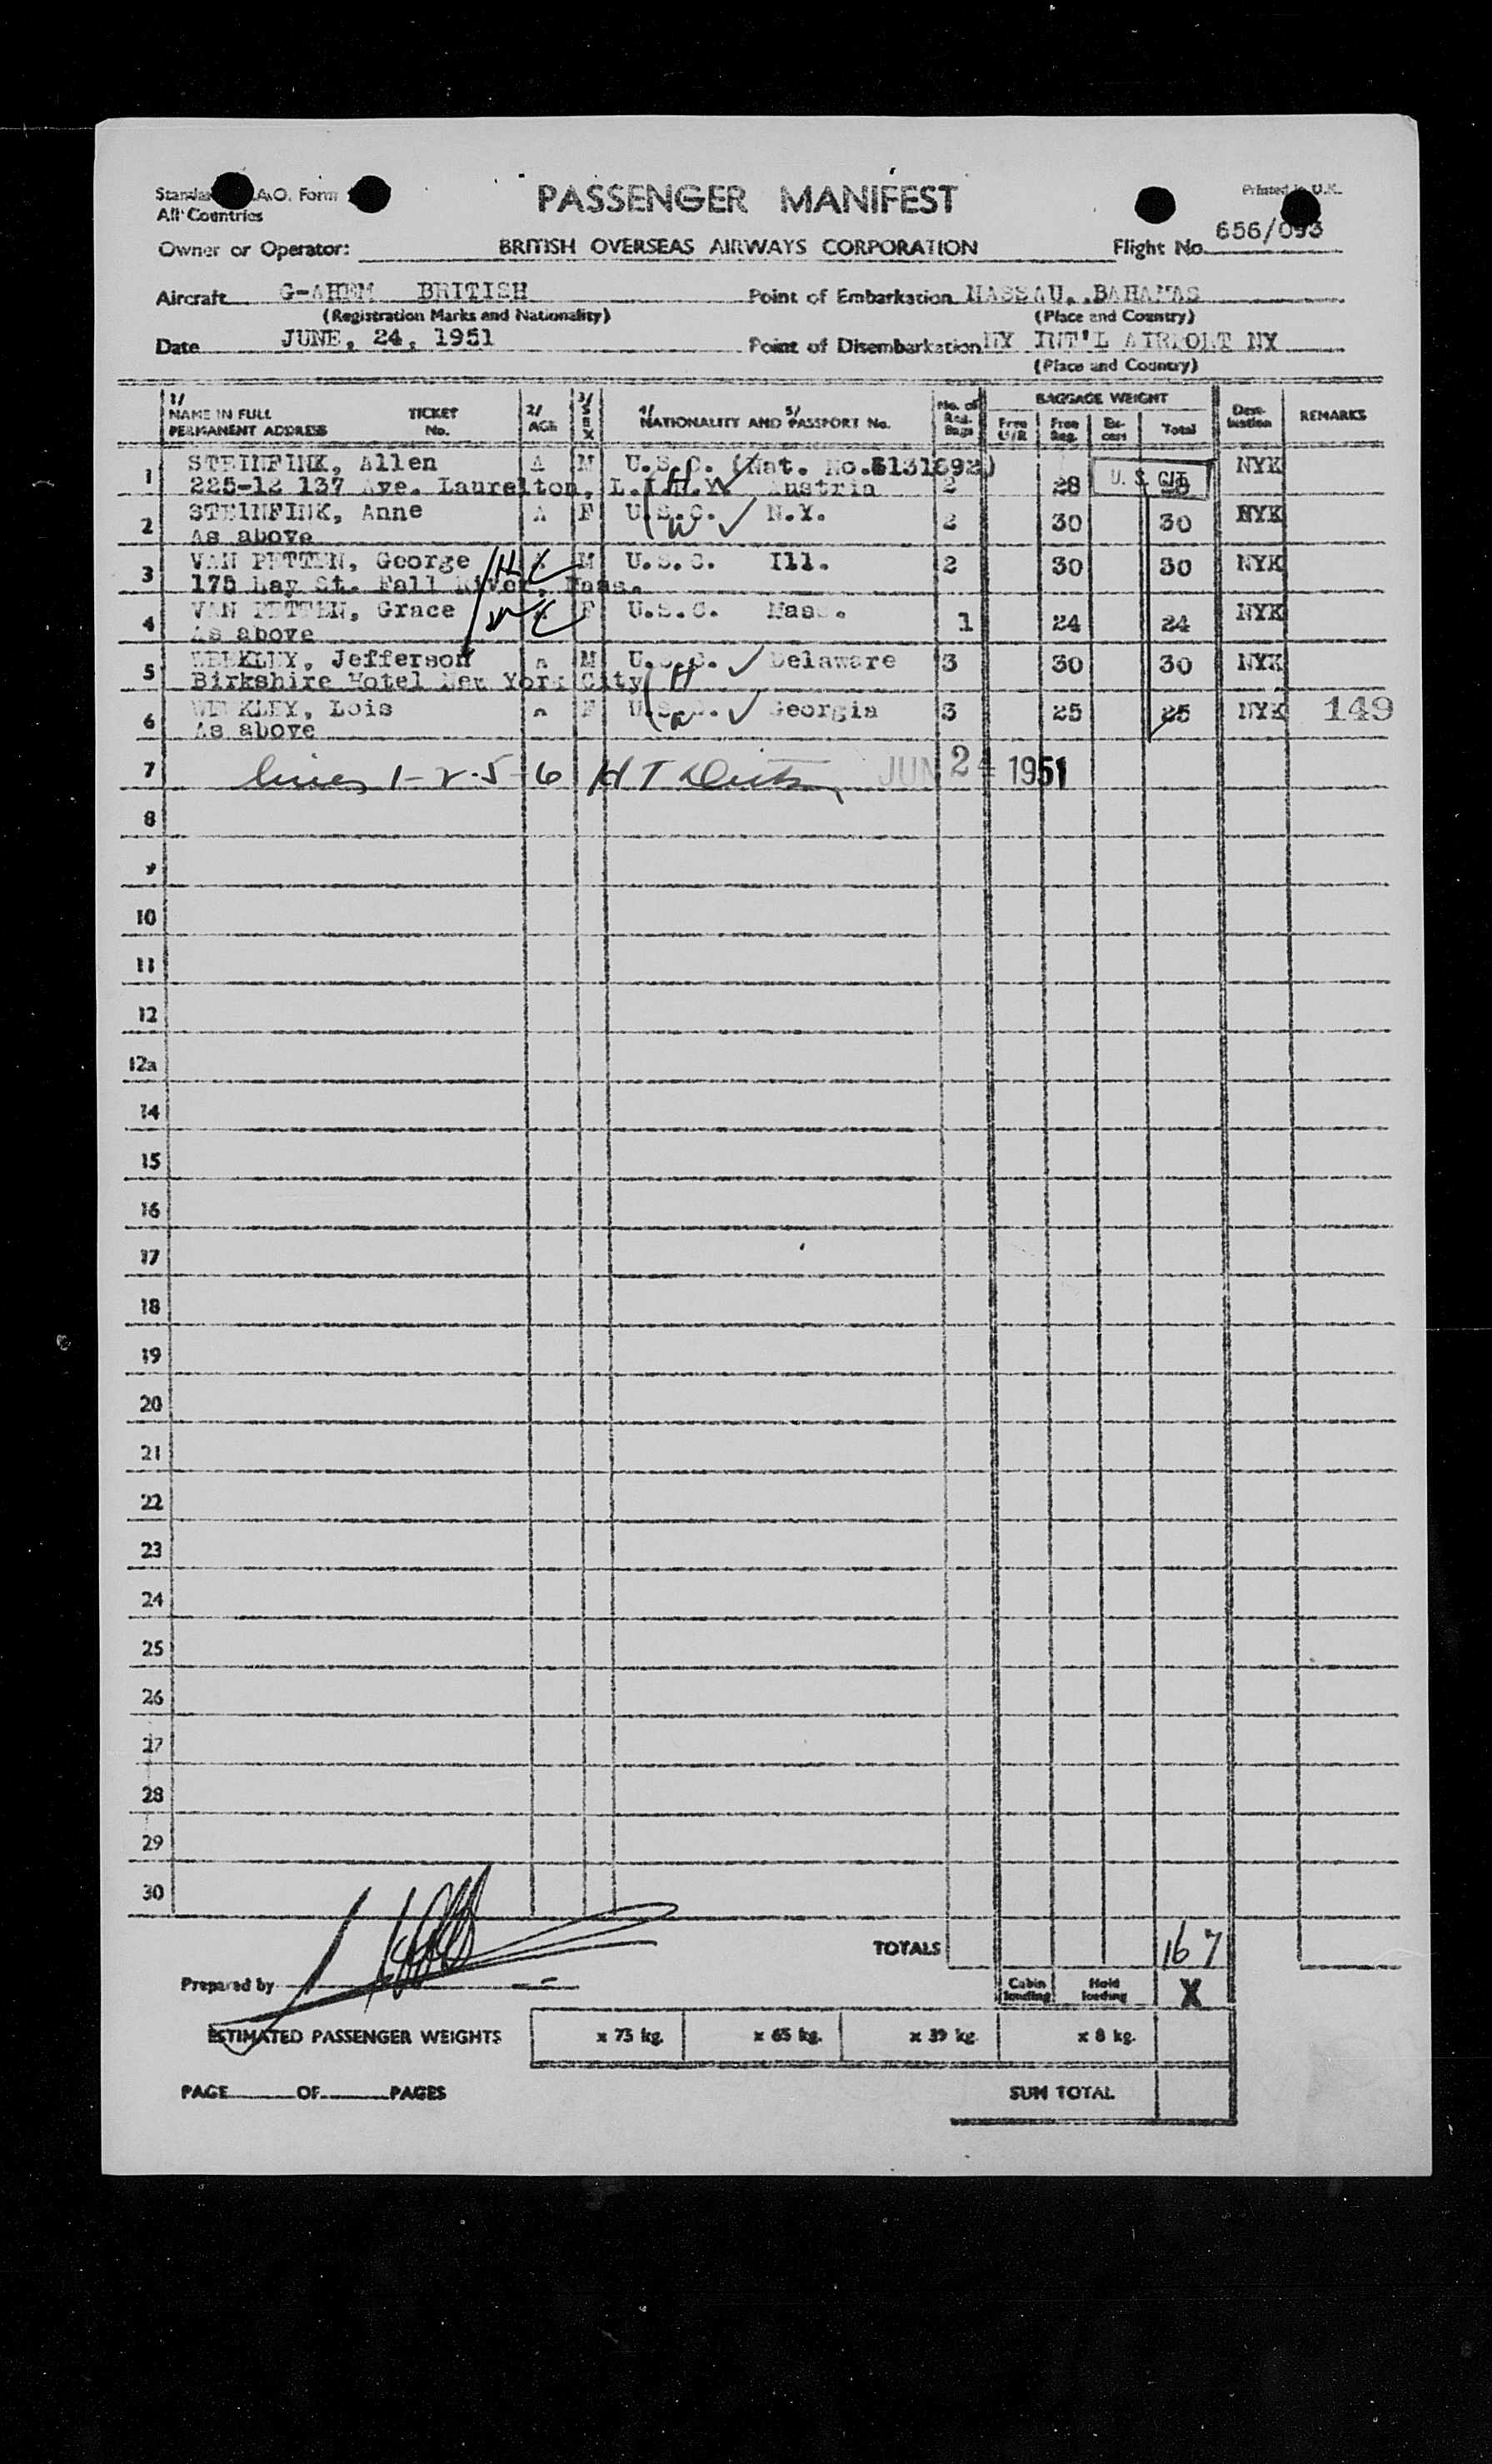 PASSENGER MANIFEST
Printed in U.K.
A.O. Form
All Countries
Owner or Operator: BRITISH OVERSEAS AIRWAYS CORPORATION Flight No. 656/093
Aircraft G-AHEM BRITISH Point of Embarkation NASSAU, BAHAMAS
(Registration Marks and Nationality) (Place and Country)
Date JUNE, 24, 1951 Point of Disembarkation NY INT'L AIRPORT NY
(Place and Country)
1/ NAME IN FULL TICKET 2/ 3/ SEX 4/ 5/ No. of BAGGAGE WEIGHT Dest- REMARKS
PERMANENT ADDRESS No. AGE NATIONALITY AND PASSPORT No. Reg. Bags Free U/R Free Reg. Ex-cess Total ination
1 STEINFINK, Allen A M U.S.C. (Nat. No. 6131892) NYK
225-12 137 Ave. Laurelton, L.I.N.Y. Austria 2 28 U. S. CIT. 28
2 STEINFINK, Anne A F U.S.C. N.Y. 2 30 30 NYK
As above
3 VAN PETTEN, George H A M U.S.C. Ill. 2 30 30 NYK
175 Bay St. Fall River, Mass.
4 VAN PETTEN, Grace W A F U.S.C. Mass. 1 24 24 NYK
As above
5 WEEKLEY, Jefferson A M U.S.C. Delaware 3 30 30 NYK
Birkshire Hotel New York City H
6 WEEKLEY, Lois A F U.S.C. Georgia 3 25 25 NYK 149
As above W
7 lines 1-2-5-6 H T JUN 24 1951
8
9
10
11
12
12a
14
15
16
17
18
19
20
21
22
23
24
25
26
27
28
29
30
TOTALS 167
Prepared by Cabin loading Hold loading X
ESTIMATED PASSENGER WEIGHTS x 75 kg. x 65 kg. x 39 kg. x 8 kg.
PAGE OF PAGES SUM TOTAL